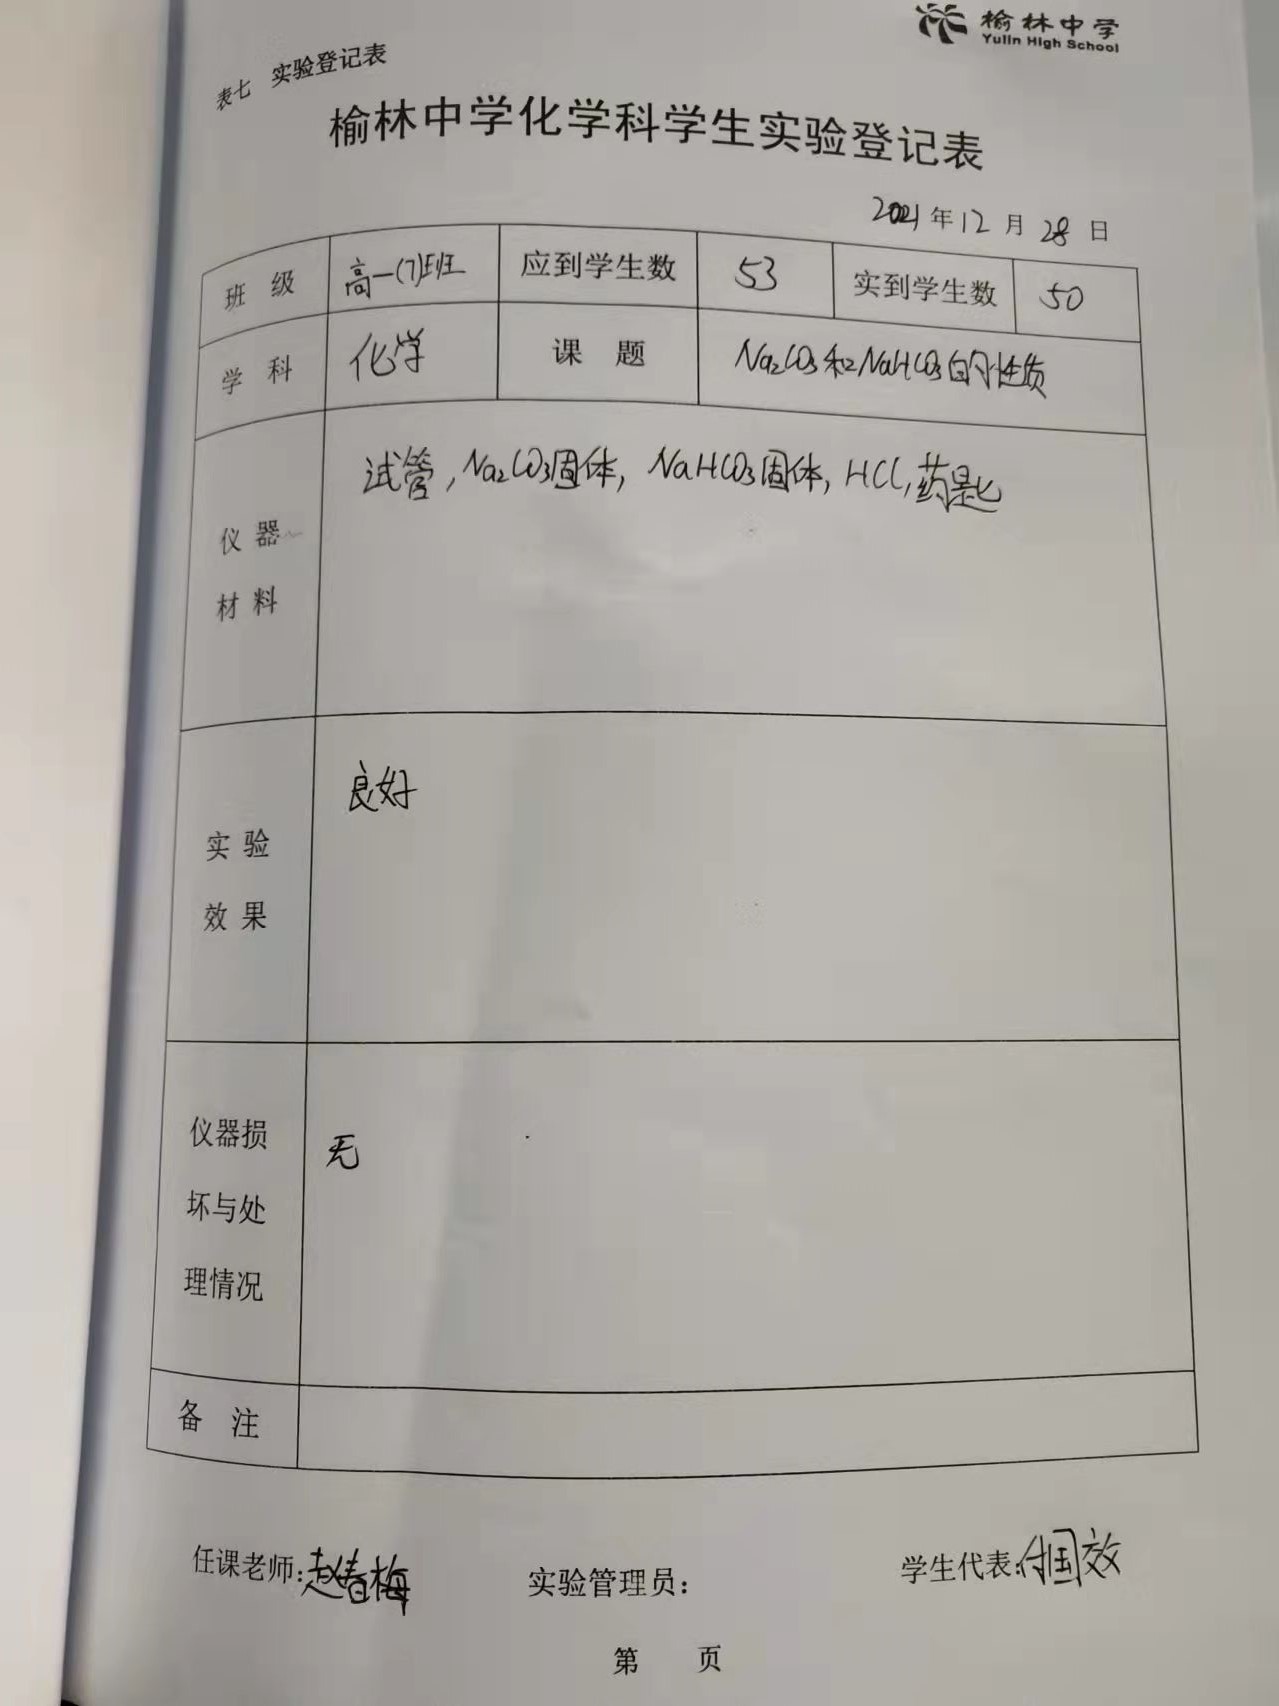 榆林中学
Yulin High School
表七 实验登记表
榆林中学化学科学生实验登记表
2021年12月28日
班级 高一(7)班 应到学生数 53 实到学生数 50
学科 化学 课题 Na₂CO₃和NaHCO₃的性质
仪器
材料
试管,Na₂CO₃固体,NaHCO₃固体,HCl,药匙
实验
效果
良好
仪器损
坏与处
理情况
无
备注
任课老师:赵春梅 实验管理员: 学生代表:付国效
第 页